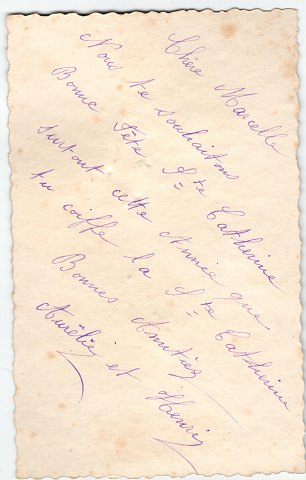 Chère Marcelle
Nous te souhaitons
Bonne Fête Ste Catherine
surtout cette Année que
tu coiffe la Ste Catherine
Bonnes Amitiez
Aurélie et Henri